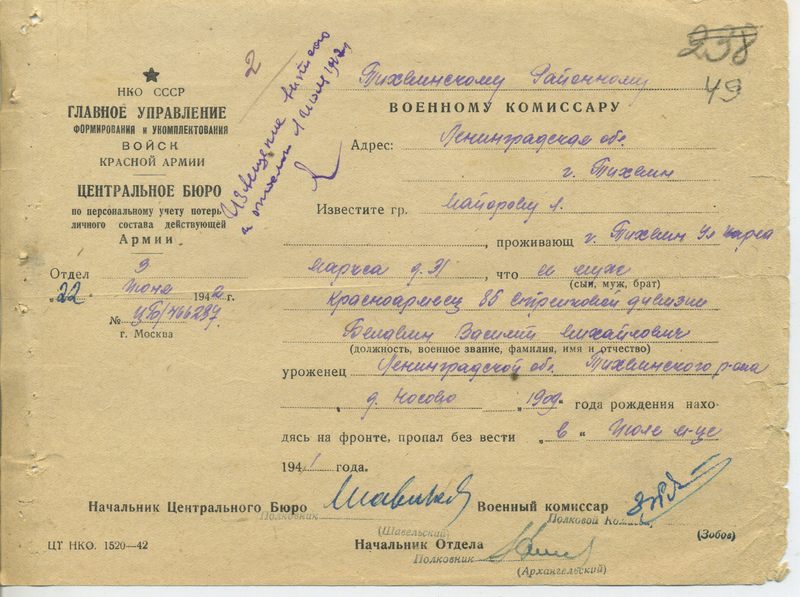 238
49
2
Извещение выписано
и отослано 1 июля 1942 г.
НКО СССР
ГЛАВНОЕ УПРАВЛЕНИЕ
ФОРМИРОВАНИЯ и УКОМПЛЕКТОВАНИЯ
ВОЙСК
КРАСНОЙ АРМИИ
ЦЕНТРАЛЬНОЕ БЮРО
по персональному учету потерь
личного состава действующей
Армии
Отдел 9
„22“ Июня 1942 г.
№ ЦБ/466287
г. Москва
Тихвинскому Районному
ВОЕННОМУ КОМИССАРУ
Адрес: Ленинградская обл.
г. Тихвин
Известите гр. Майорову Л.
, проживающ г. Тихвин Ул Карла
Маркса д. 31, что ее муж
(сын, муж, брат)
Красноармеец 85 стрелковой дивизии
Белавин Василий Михайлович
(должность, военное звание, фамилия, имя и отчество)
уроженец Ленинградской обл. Тихвинского р-она
д. Носово „1909“ года рождения нахо-
дясь на фронте, пропал без вести „в“ Июле м-це
1941 года.
Начальник Центрального Бюро
Полковник
(Шавельский)
Военный комиссар
Полковой
(Зобов)
Начальник Отдела
Полковник
(Архангельский)
ЦТ НКО. 1520—42